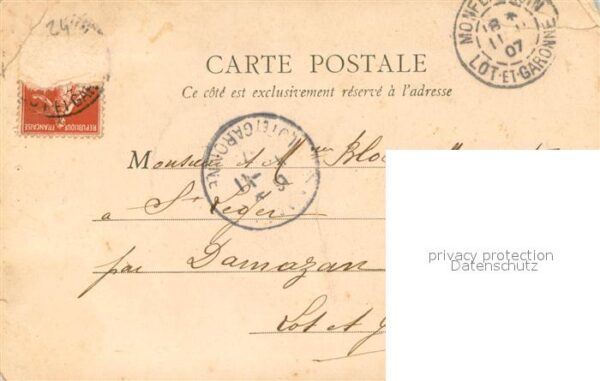 24
REPUBLIQUE FRANÇAISE
LOT-ET-GARONNE
11
07
CARTE POSTALE
Ce côté est exclusivement réservé à l'adresse
LOT-ET-GARONNE
11
Monsieur et Mme
à St Léger
par Damazan
Lot et
privacy protection
Datenschutz